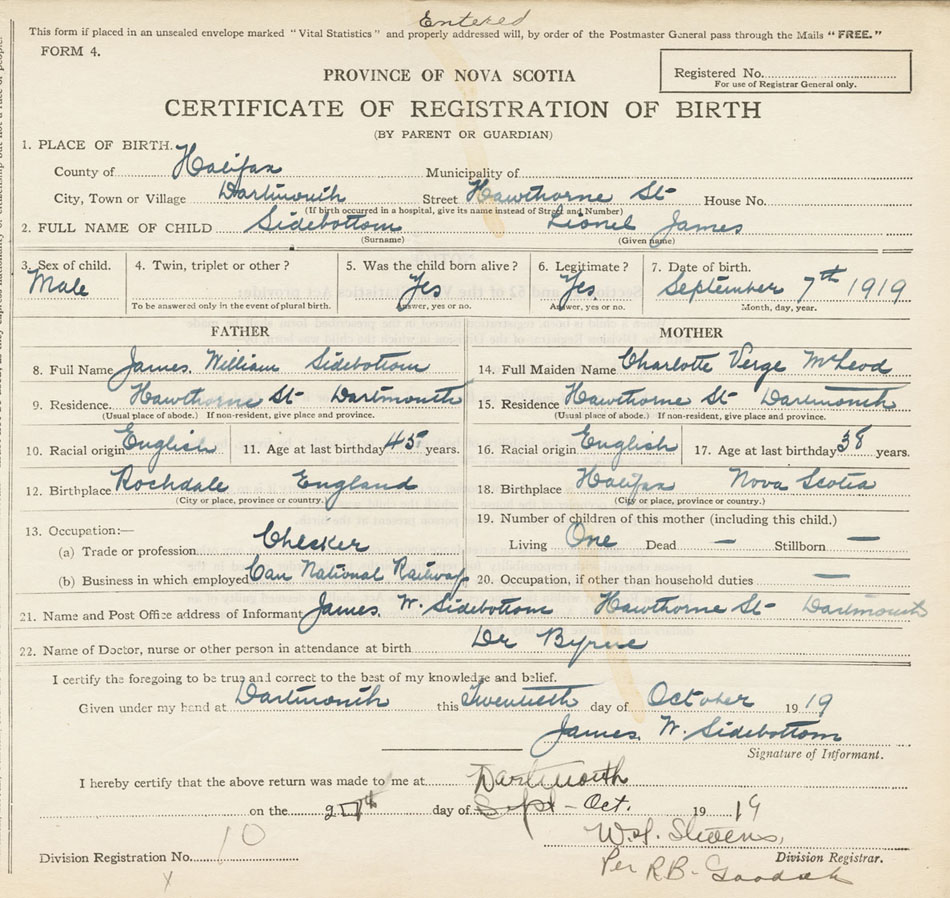 Entered
This form if placed in an unsealed envelope marked "Vital Statistics" and properly addressed will, by order of the Postmaster General pass through the Mails "FREE."
FORM 4.
Registered No.
For use of Registrar General only.
PROVINCE OF NOVA SCOTIA
CERTIFICATE OF REGISTRATION OF BIRTH
(BY PARENT OR GUARDIAN)
1. PLACE OF BIRTH.
County of Halifax Municipality of
City, Town or Village Dartmouth Street Hawthorne St- House No.
(If birth occurred in a hospital, give its name instead of Street and Number)
2. FULL NAME OF CHILD Sidebottom Lionel James
(Surname) (Given name)
3. Sex of child. 4. Twin, triplet or other? 5. Was the child born alive? 6. Legitimate? 7. Date of birth.
Male Yes Yes. September 7th 1919
To be answered only in the event of plural birth. Answer, yes or no. Answer, yes or no. Month, day, year.
FATHER MOTHER
8. Full Name James. William Sidebottom 14. Full Maiden Name Charlotte Verge McLeod
9. Residence. Hawthorne St- Dartmouth 15. Residence Hawthorne St- Dartmouth
(Usual place of abode.) If non-resident, give place and province. (Usual place of abode.) If non-resident, give place and province.
10. Racial origin English 11. Age at last birthday 45 years. 16. Racial origin English 17. Age at last birthday 38 years.
12. Birthplace Rochdale England 18. Birthplace Halifax Nova Scotia
(City or place, province or country.) (City or place, province or country.)
13. Occupation:— 19. Number of children of this mother (including this child.)
(a) Trade or profession Checker Living One Dead — Stillborn —
(b) Business in which employed Can National Railway 20. Occupation, if other than household duties —
21. Name and Post Office address of Informant James. W. Sidebottom Hawthorne St- Dartmouth
22. Name of Doctor, nurse or other person in attendance at birth Dr Byrne
I certify the foregoing to be true and correct to the best of my knowledge and belief.
Given under my hand at Dartmouth this Twentieth day of October 1919
James. W. Sidebottom
Signature of Informant.
I hereby certify that the above return was made to me at Dartmouth
on the day of Sept - Oct. 1919
W.S. Stevens,
Division Registration No. 10 Division Registrar.
Per R.B.